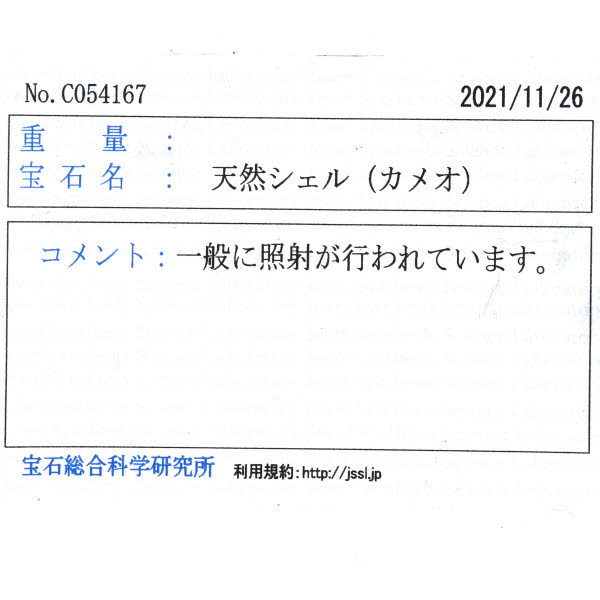 No.C054167 2021/11/26
重 量 :
宝石名 : 天然シェル (カメオ)
コメント : 一般に照射が行われています。
宝石総合科学研究所 利用規約:http://jssl.jp